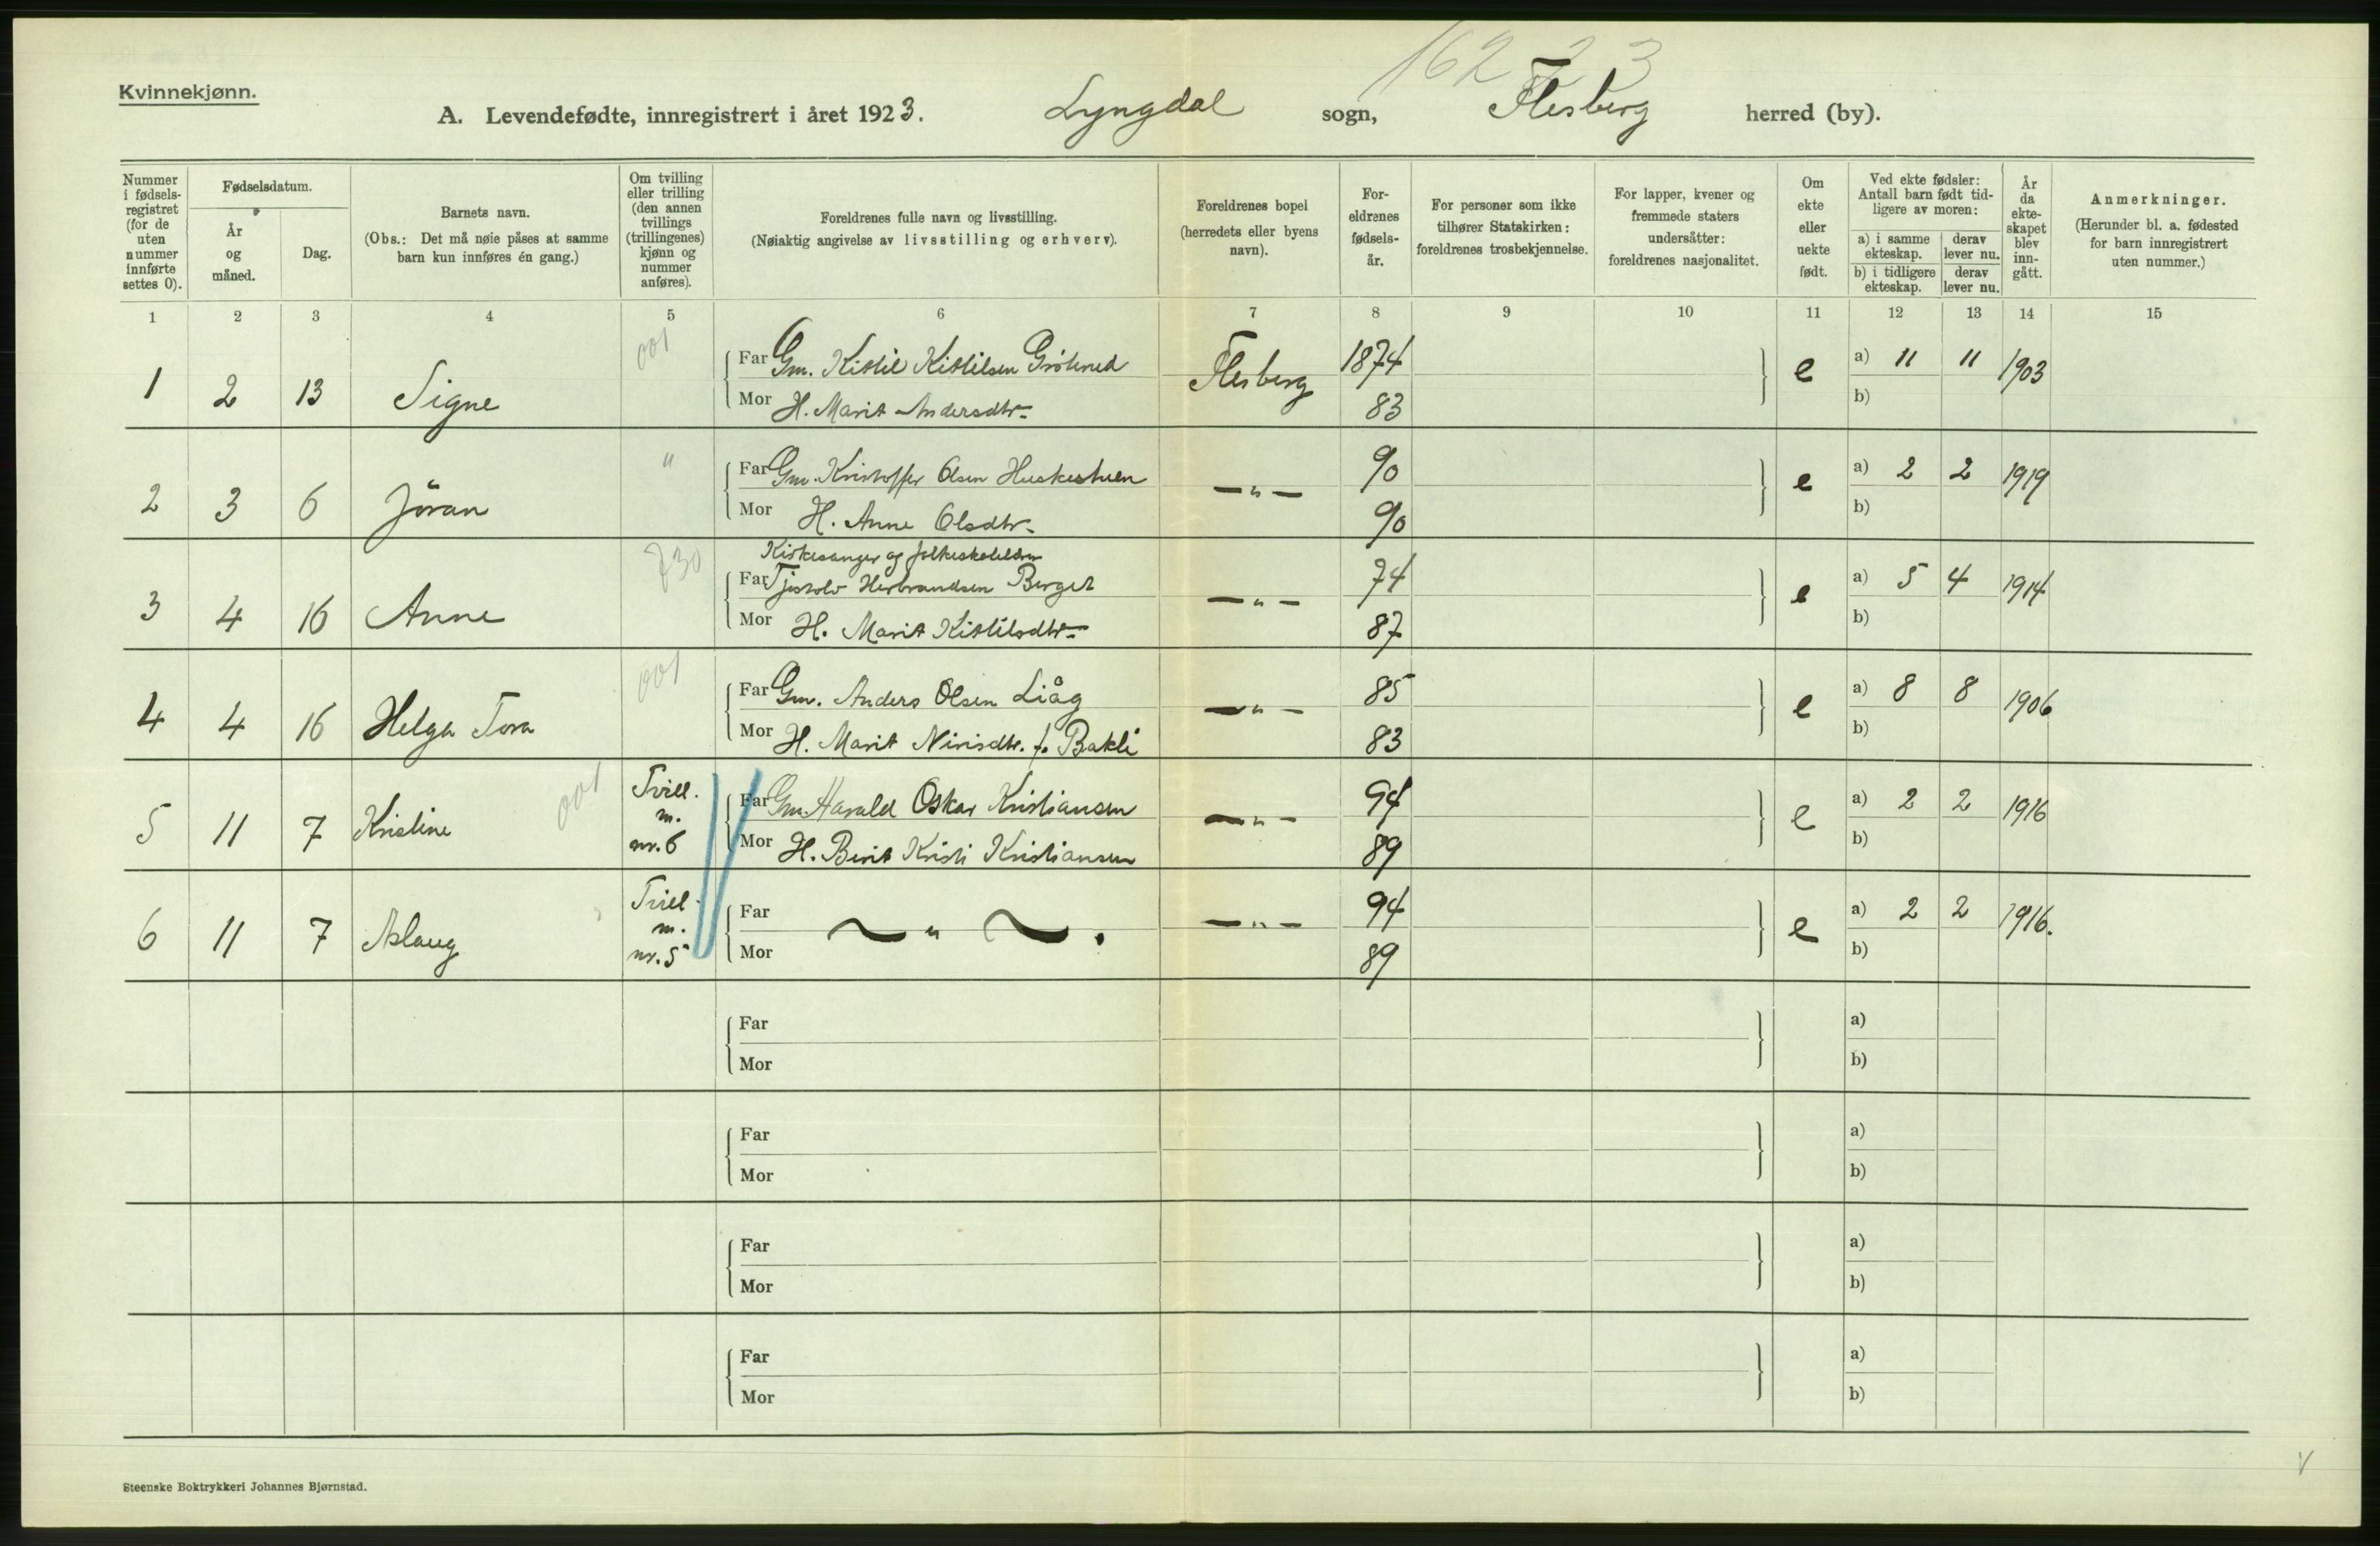 162 2 3
Kvinnekjønn.
A. Levendefødte, innregistrert i året 1923. Lyngdal sogn, Flesberg herred (by).
Nummer i fødsels- registret (for de uten nummer innførte settes 0).
Fødselsdatum.
År og måned.
Dag.
Barnets navn.
(Obs.: Det må nøie påses at samme barn kun innføres én gang.)
Om tvilling eller trilling (den annen tvillings (trillingenes) kjønn og nummer anføres).
Foreldrenes fulle navn og livsstilling.
(Nøiaktig angivelse av livsstilling og erhverv).
Foreldrenes bopel (herredets eller byens navn).
For- eldrenes fødsels- år.
For personer som ikke tilhører Statskirken: foreldrenes trosbekjennelse.
For lapper, kvener og fremmede staters undersåtter: foreldrenes nasjonalitet.
Om ekte eller uekte født.
Ved ekte fødsler: Antall barn født tid- ligere av moren:
a) i samme ekteskap. derav lever nu.
b) i tidligere ekteskap. derav lever nu.
År da ekte- skapet blev inn- gått.
Anmerkninger.
(Herunder bl. a. fødested for barn innregistrert uten nummer.)
1 2 3 4 5 6 7 8 9 10 11 12 13 14 15
001
Far Gm. Kittil Kittilsen 1874 a) 11 11
1 2 13 Signe Flesberg e 1903
Mor H. Marit Andersdtr. 83 b)
"
Far Gm. Kristoffer Olsen 90 a) 2 2
2 3 6 Jöran —"— e 1919
Mor H. Anne Olsdtr. 90 b)
730 Kirkesanger og folkeskolelærer
Far Herbrandsen Berget 74 a) 5 4
3 4 16 Anne —"— e 1914
Mor H. Marit Kittilsdtr. 87 b)
001
Far Gm. Anders Olsen Liåg 85 a) 8 8
4 4 16 Helga Tora —"— e 1906
Mor H. Marit f. Bakli 83 b)
001 Tvill.
Far Gm. Harald Oskar Kristiansen 94 a) 2 2
5 11 7 Kristine m. nr. 6 —"— e 1916
Mor H. Berit Kristi Kristiansen 89 b)
Tvill.
Far 94 a) 2 2
6 11 7 Aslaug m. nr. 5 — " — . —"— e 1916.
Mor 89 b)
Far a)
Mor b)
Far a)
Mor b)
Far a)
Mor b)
Far a)
Mor b)
Steenske Boktrykkeri Johannes Bjørnstad.